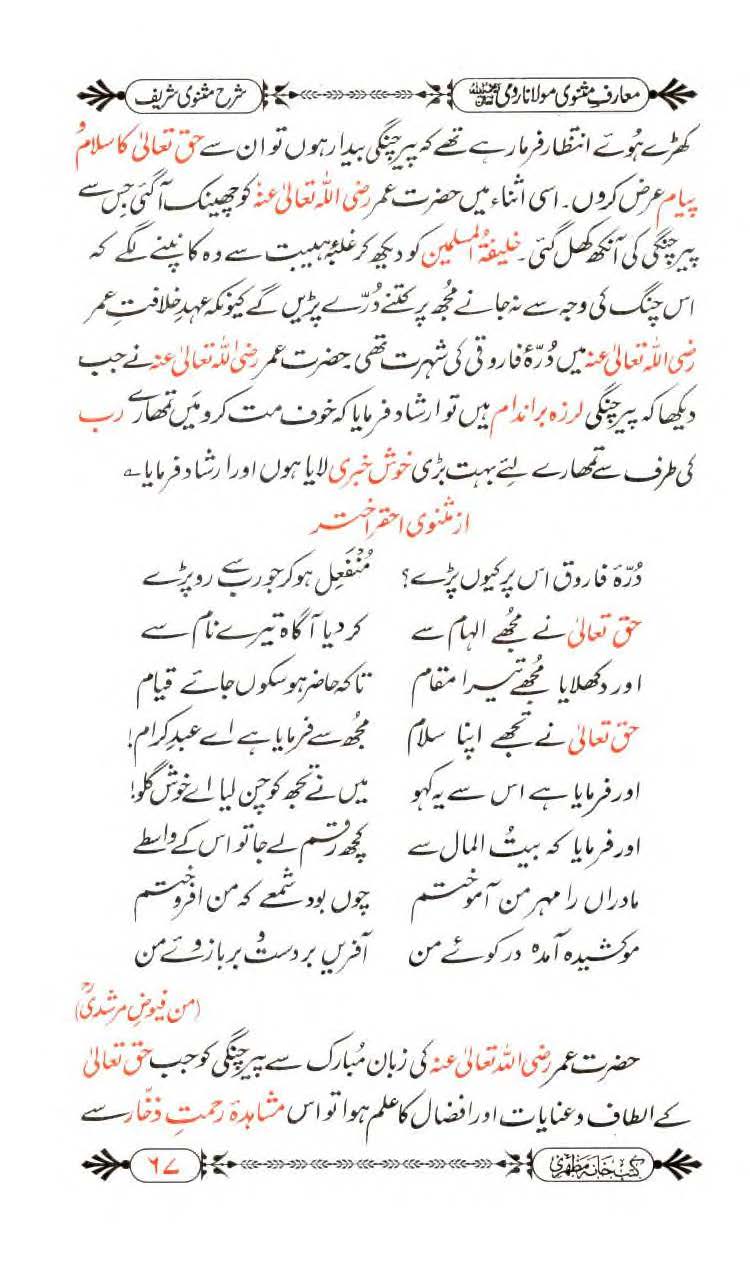 معارفِ مثنوی مولانا رومی ﷫ شرح مثنوی شریف
کھڑے ہوئے انتظار فرما رہے تھے کہ پیر چنگی بیدار ہوں تو ان سے حق تعالیٰ کا سلام و
پیام عرض کروں۔ اسی اثناء میں حضرت عمر رضی اللہ تعالیٰ عنہٗ کو چھینک آگئی جس سے
پیر چنگی کی آنکھ کھل گئی۔ خلیفۃُ المسلمین کو دیکھ کر غلبۂ ہیبت سے وہ کانپنے لگے کہ
اس چنگ کی وجہ سے نہ جانے مجھ پر کتنے دُرّے پڑیں گے کیونکہ عہدِ خلافتِ عمر
رضی اللہ تعالیٰ عنہ میں دُرّۂ فاروقی کی شہرت تھی۔ حضرت عمر رضی اللہ تعالیٰ عنہ نے جب
دیکھا کہ پیر چنگی لرزہ براندام ہیں تو ارشاد فرمایا کہ خوف مت کرو میَں تمھارے رب
کی طرف سے تمھارے لیٔے بہت بڑی خوش خبری لایا ہوں اور ارشاد فرمایا ؎
از مثنوی احقر اختر
دُرّۂ فاروق اس پر کیوں پڑے؟ مُنْفَعِل ہو کر جو رب سے رو پڑے
حق تعالیٰ نے مجُھے الہام سے کر دیا آگاہ تیرے نام سے
اور دکھلایا مجُھے تیرا مقام تاکہ حاضر ہو سکوں جائے قیام
حق تعالیٰ نے تجھے اپنا سلام مجھ سے فرمایا ہے اے عبدِ کرام!
اور فرمایا ہے اس سے یہ کہو میں نے تجھ کو چن لیا اے خوش گلو!
اور فرمایا کہ بیتُ المال سے کچُھ رقم لے جا تو اس کے واسطے
مادراں را مہرِ من آموختم چوں بود شمعے کہ من افروختم
مو کشیدہ آمدہ در کوئے من آفریں بر دست و بر بازوئے من
(من فیوضِ مرشدیؒ)
حضرت عمر رضی اللہ تعالیٰ عنہ کی زبانِ مُبارک سے پیر چنگی کو جب حق تعالیٰ
کے الطاف و عنایات اور افضال کا علم ہوا تو اس مشاہدۂ رحمتِ ذخّار سے
کتب خانہ مظہری ۶۷